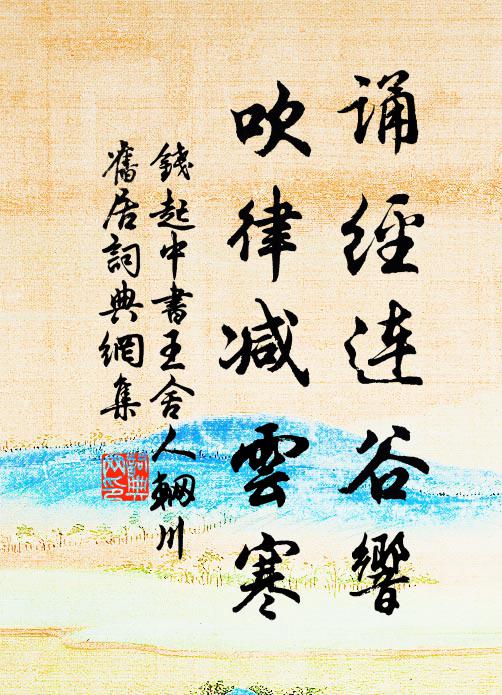 诵經連谷響
吹律减雲寒
錢起中書王舍人輞川
舊居詞典網集